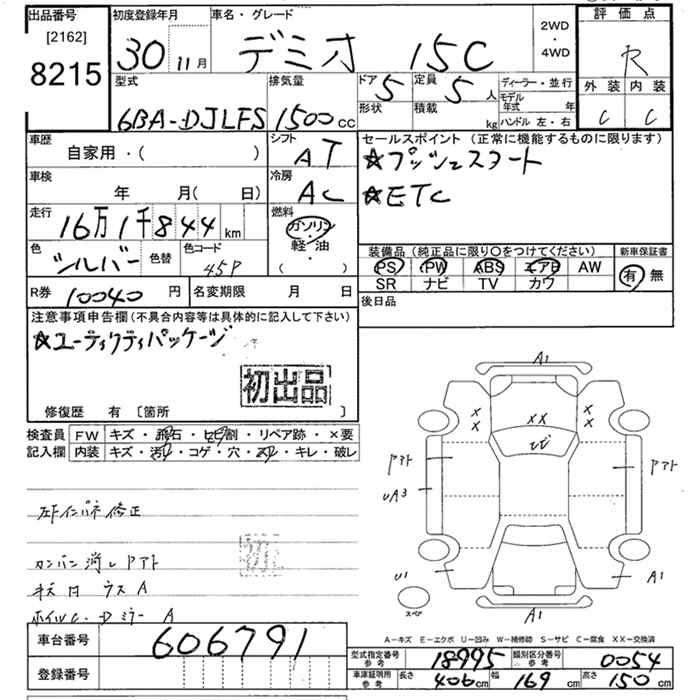 出品番号
[2162]
8215
初度登録年月
30 11月
車名・グレード
デミオ 15C
2WD
・
4WD
評価点
R
外装 内装
C C
型式
6BA-DJLFS
排気量
1500cc
ドア 5
定員 5人
形状
積載 kg
ディーラー・並行
モデル年式 年
ハンドル 左・右
車歴
自家用・( )
車検
年 月( 日)
走行
16万1千844km
色
シルバー
色替
色コード
45P
シフト
AT
冷房
AC
燃料
ガソリン
・
軽油
・
( )
セールスポイント(正常に機能するものに限ります)
☆プッシュスタート
☆ETC
装備品(純正品に限り○をつけてください)
PS PW ABS エアB AW
SR ナビ TV カワ
新車保証書
有 無
後日品
R券 10040円
名変期限 月 日
注意事項申告欄(不具合内容等は具体的に記入して下さい)
☆ユーティリティパッケージ
初出品
修復歴 有 [箇所 ]
検査員
記入欄
FW キズ・飛石・ヒビ割・リペア跡・×要
内装 キズ・汚れ・コゲ・穴・スレ・キレ・破レ
左ドインパネ修正
カンバン消しアト
キズ凹ウスA
ホイルC・DミラーA
車台番号
606791
登録番号
A1
××
××
××
アト
UA3
アト
U1
A1
スペア
A1
A-キズ E-エクボ U-凹み W-補修跡 S-サビ C-腐食 XX-交換済
型式指定番号
参考
18995
類別区分番号
参考
0054
車庫証明用
参考
長さ 406cm
幅 169cm
高さ 150cm